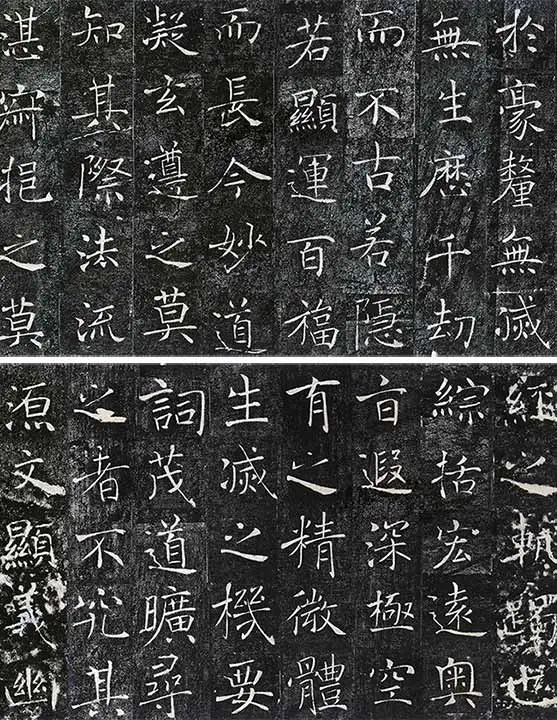 於豪釐無滅
無生歷千劫
而不古若隱
若顯運百福
而長今妙道
凝玄遵之莫
知其際法流
湛寂挹之莫
經之軌躅也
綜括宏遠奧
旨遐深極空
有之精微體
生滅之機要
詞茂道曠尋
之者不究其
源文顯義幽